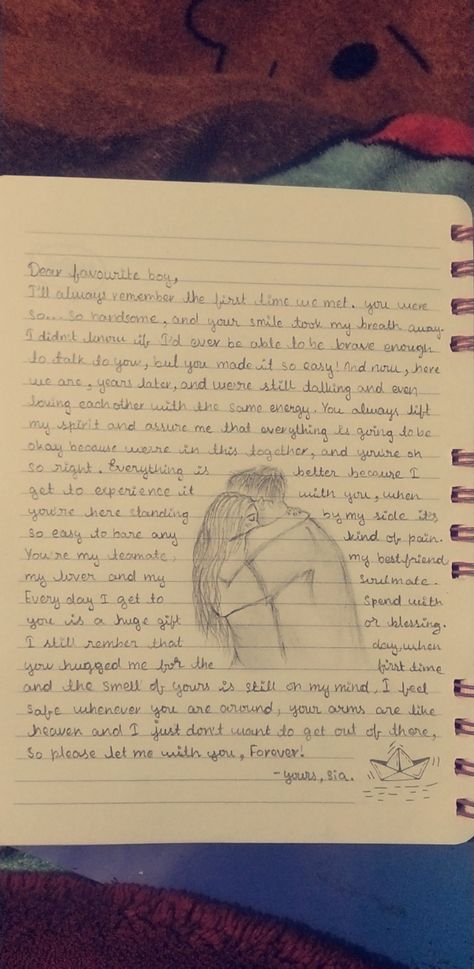 Dear favourite boy,
I'll always remember the first time we met. you were
so... so handsome, and your smile took my breath away.
I didn't know if I'd ever be able to be brave enough
to talk to you, but you made it so easy! And now, here
we are, years later, and we're still talking and even
loving eachother with the same energy. You always lift
my spirit and assure me that everything is going to be
okay because we're in this together, and you're oh
so right. Everything is better because I
get to experience it with you, when
you're here standing by my side it's
so easy to bare any kind of pain.
You're my teamate, my bestfriend
my lover and my soulmate.
Every day I get to spend with
you is a huge gift or blessing.
I still rember that day, when
you hugged me for the first time
and the smell of yours is still on my mind, I feel
safe whenever you are around, your arms are like
heaven and I just don't want to get out of there,
so please let me with you, Forever!
-yours, sia.